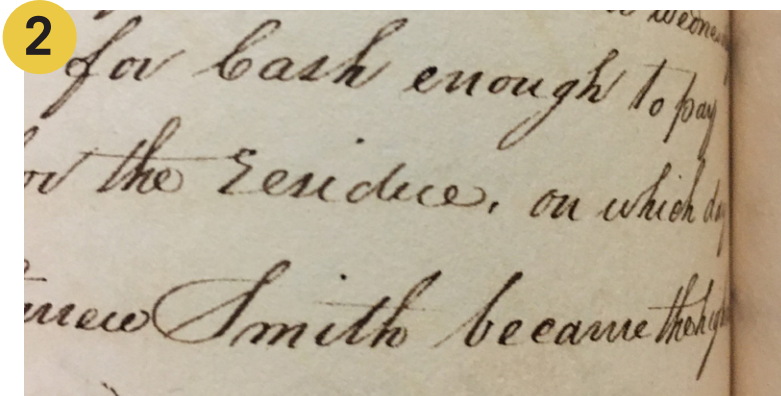 2
for Cash enough to pay
the residue, on which
Smith became the